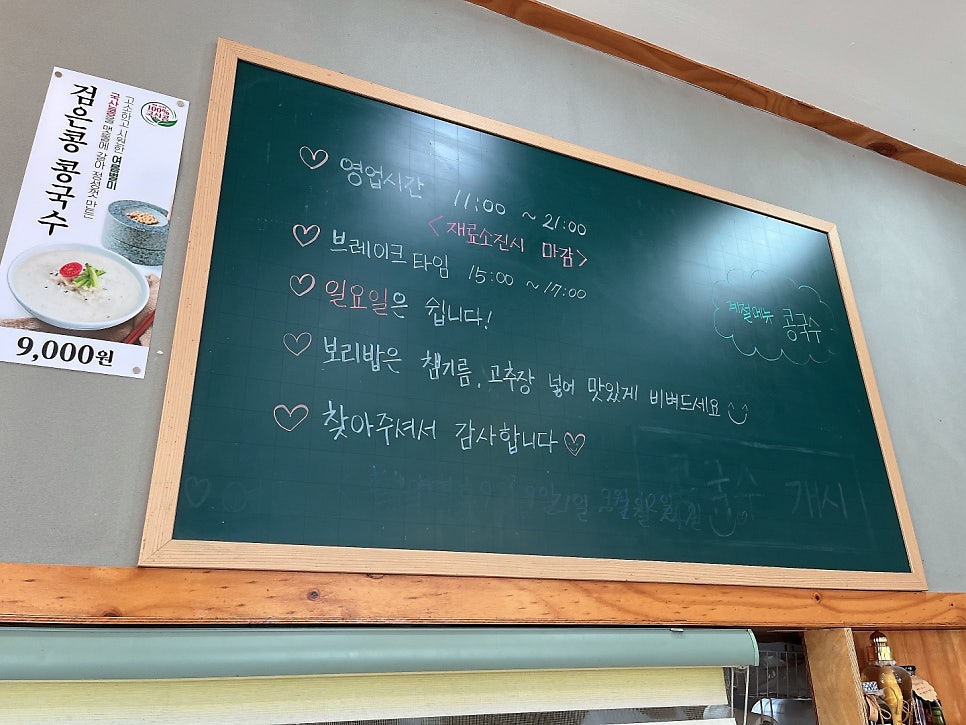 100%
국산콩
고소하고 시원한 여름별미
국산콩을 맷돌에 갈아 정성껏 만든
검은콩 콩국수
9,000원
영업시간 11:00 ~ 21:00
<재료소진시 마감>
브레이크 타임 15:00 ~ 17:00
일요일은 쉽니다!
보리밥은 챔기름, 고추장 넣어 맛있게 비벼드세요
찾아주셔서 감사합니다
계절메뉴 콩국수
콩국수 개시